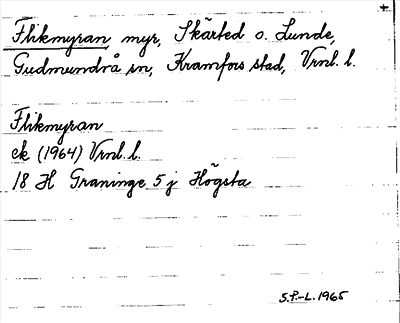 Flikmyran, myr, Skärted o. Lunde,
Gudmundrå sn, Kramfors stad, Vrnl. l.
Flikmyran
ek (1964) Vrnl. l.
18 H Graninge 5 j Högsta
S.P.-L. 1965